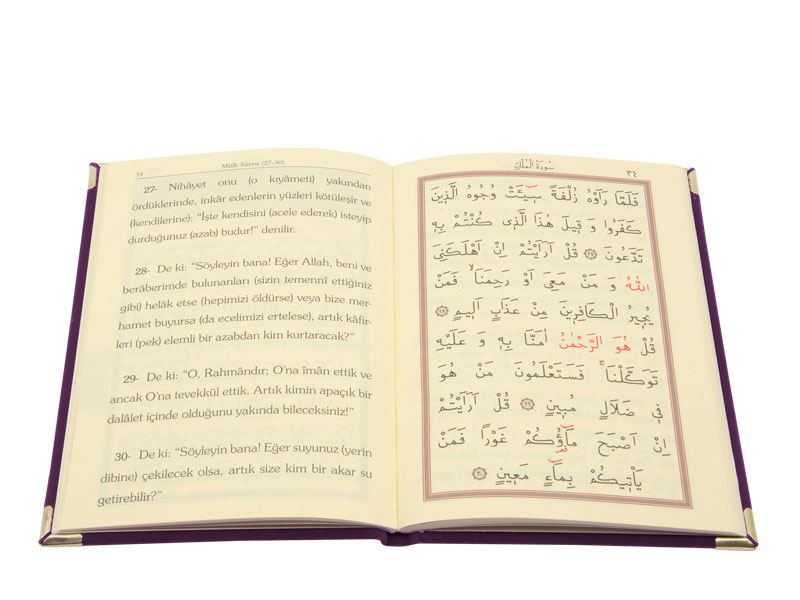 34
Mülk Sûresi (27-30)
27- Nihâyet onu (o kıyâmeti) yakından
ördüklerinde, inkâr edenlerin yüzleri kötüleşir ve
(kendilerine): “İşte kendisini (acele ederek) isteyip
durduğunuz (azab) budur!” denilir.
28- De ki: “Söyleyin bana! Eğer Allah, beni ve
berâberimde bulunanları (sizin temennî ettiğiniz
gibi) helâk etse (hepimizi öldürse) veya bize mer-
hamet buyursa (da ecelimizi ertelese), artık kâfir-
leri (pek) elemli bir azabdan kim kurtaracak?”
29- De ki: “O, Rahmândır; O’na îmân ettik ve
ancak O’na tevekkül ettik. Artık kimin apaçık bir
dalâlet içinde olduğunu yakında bileceksiniz!”
30- De ki: “Söyleyin bana! Eğer suyunuz (yerin
dibine) çekilecek olsa, artık size kim bir akar su
getirebilir?”
سُورَةُ الْمُلْكِ
٣٤
فَلَمَّا رَاَوْهُ زُلْفَةً سٖٓيـَٔتْ وُجُوهُ الَّذٖينَ
كَفَرُوا وَ قٖيلَ هٰذَا الَّذٖى كُنْتُمْ بِهٖ
تَدَّعُونَ ﴿٢٧﴾ قُلْ اَرَاَيْتُمْ اِنْ اَهْلَكَنِىَ
اللّٰهُ وَ مَنْ مَعِىَ اَوْ رَحِمَنَاۙ فَمَنْ
يُجٖيرُ الْكَافِرٖينَ مِنْ عَذَابٍ اَلٖيمٍ ﴿٢٨﴾
قُلْ هُوَ الرَّحْمٰنُ اٰمَنَّا بِهٖ وَ عَلَيْهِ
تَوَكَّلْنَاۚ فَسَتَعْلَمُونَ مَنْ هُوَ
فٖى ضَلَالٍ مُبٖينٍ ﴿٢٩﴾ قُلْ اَرَاَيْتُمْ
اِنْ اَصْبَحَ مَٓاؤُكُمْ غَوْرًا فَمَنْ
يَاْتٖيكُمْ بِمَٓاءٍ مَعٖينٍ ﴿٣٠﴾